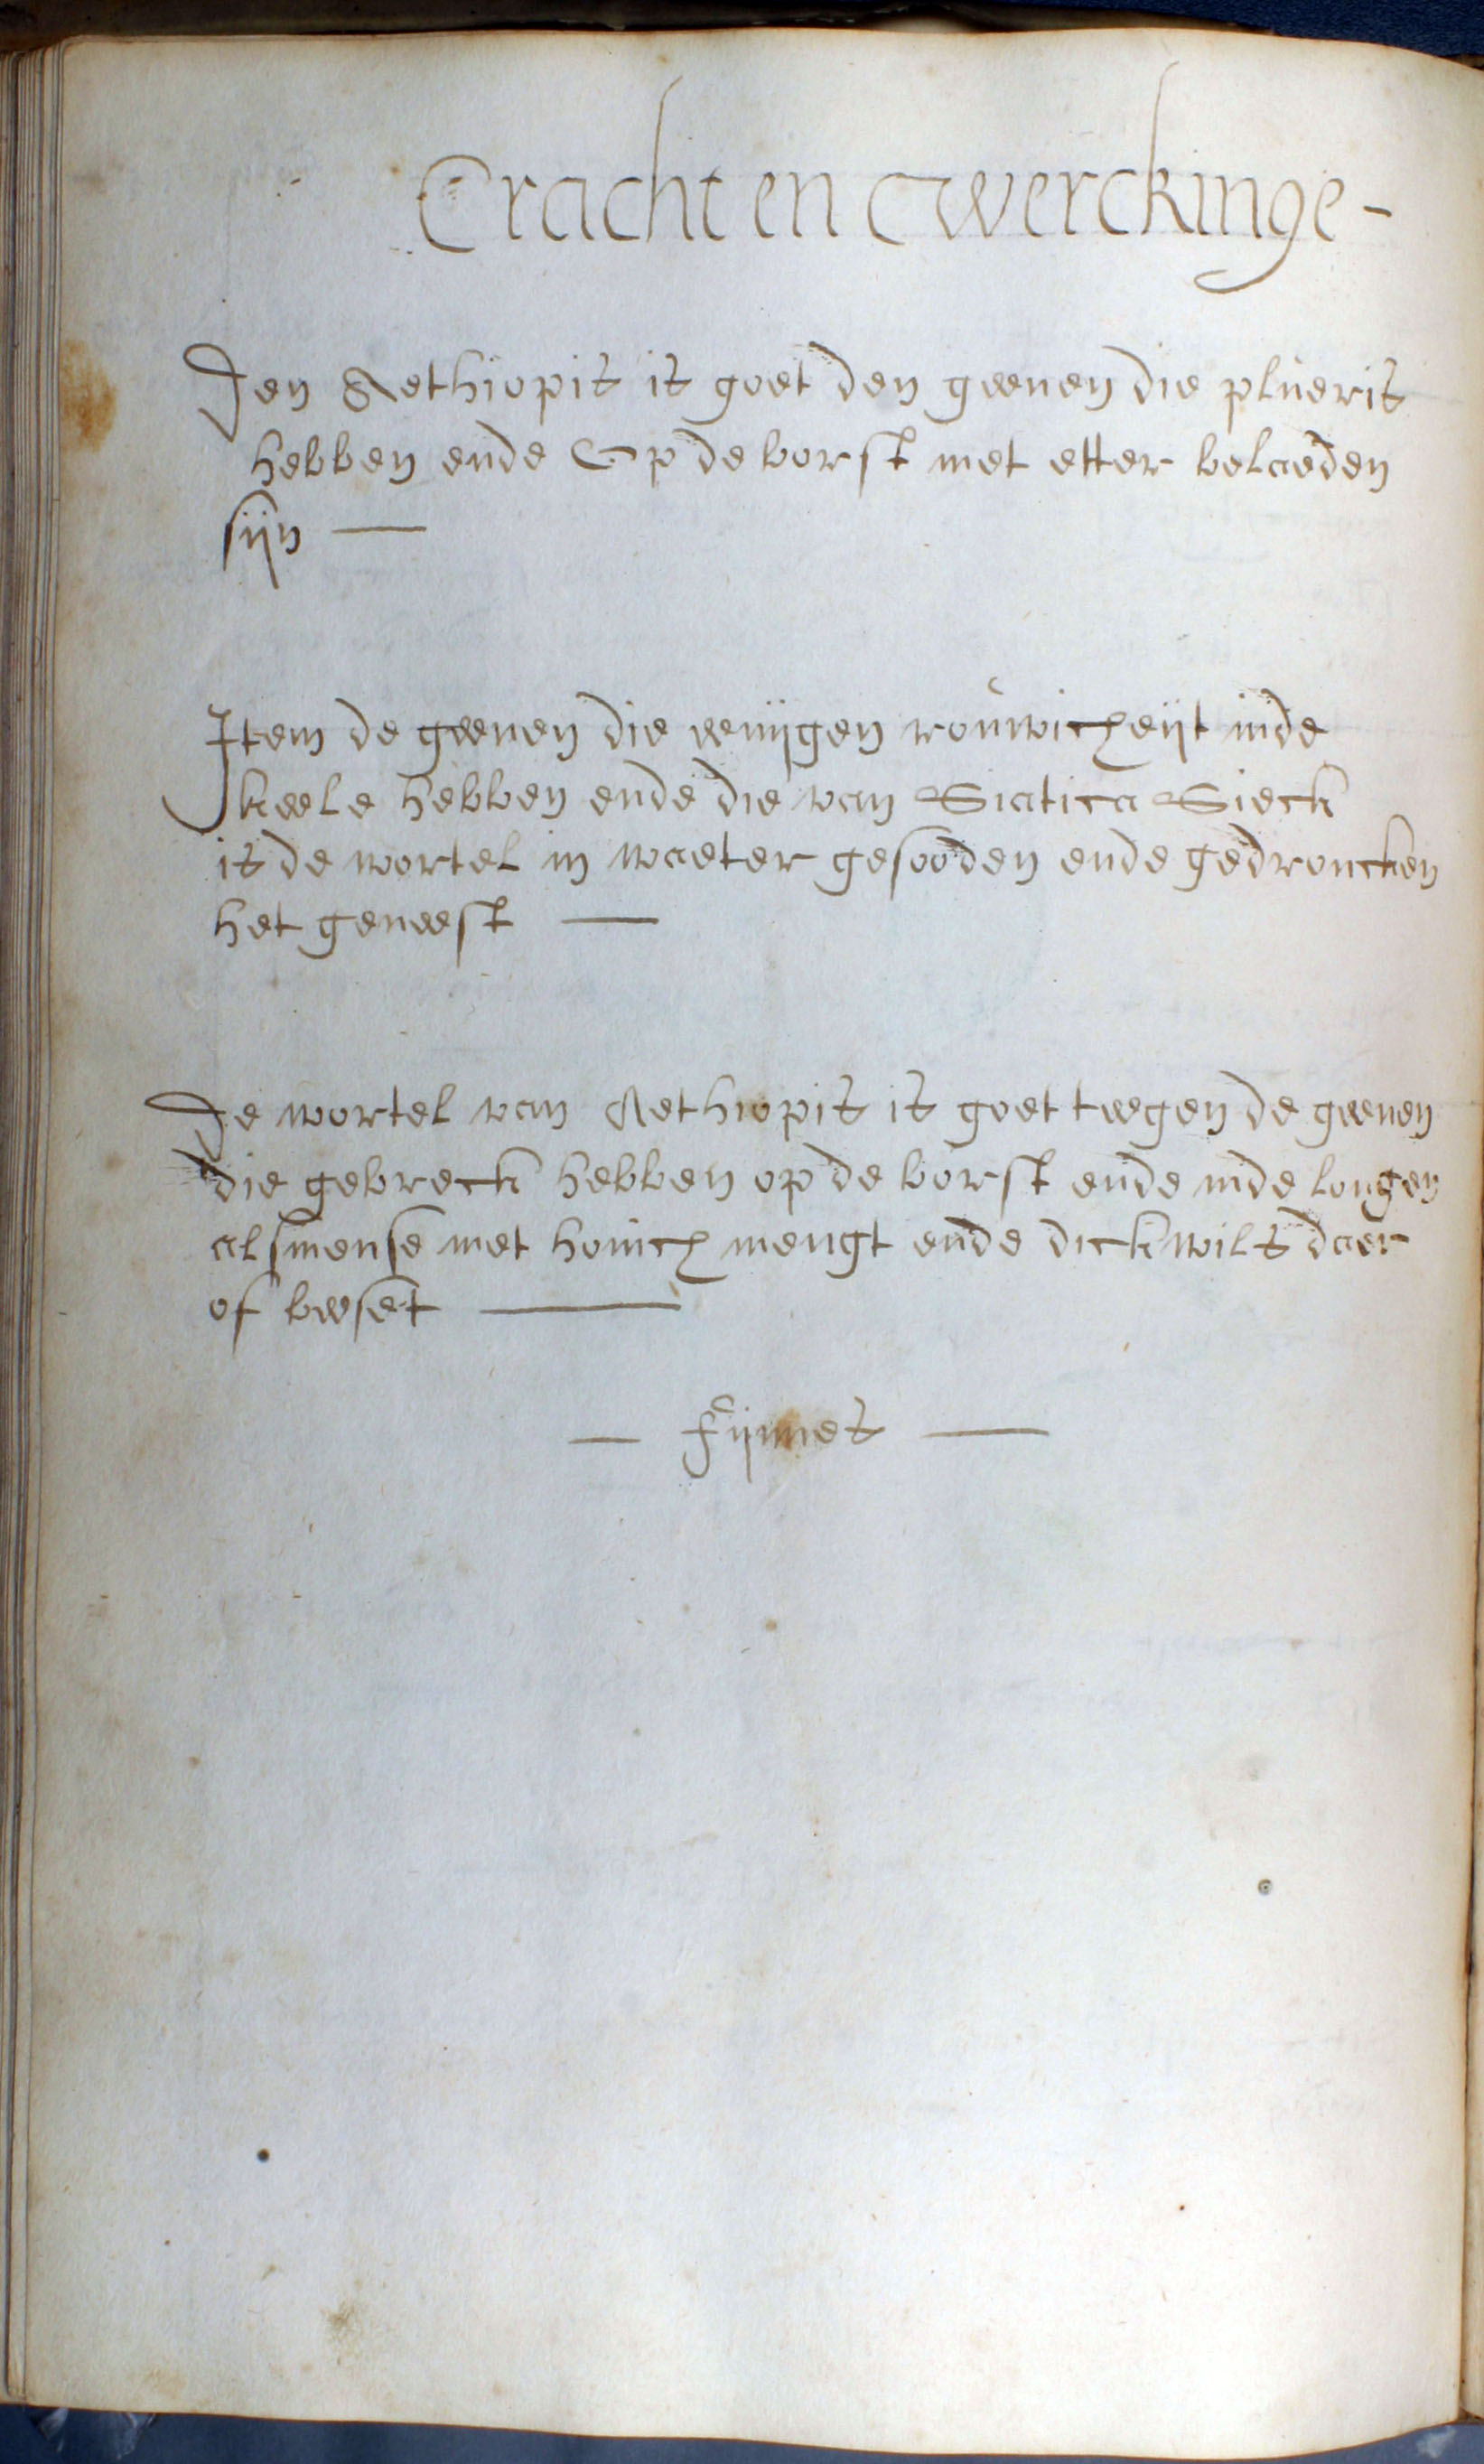 Cracht en werckinge -
Den Aethiopis is goet den geenen die plueris
hebben ende Op de borst met etter belaeden
sijn —
Item de geenen die eenijgen rouwicheijt inde
keele hebben ende die van Siatica Sieck
is de wortel in waeter gesooden ende gedroncken
het geneest —
De wortel van Aethiopis is goet teegen de geenen
die gebreck hebben op de borst ende inde longen
alsmense met honich mengt ende dickwils daer
of beeset —
— Fijnnes —